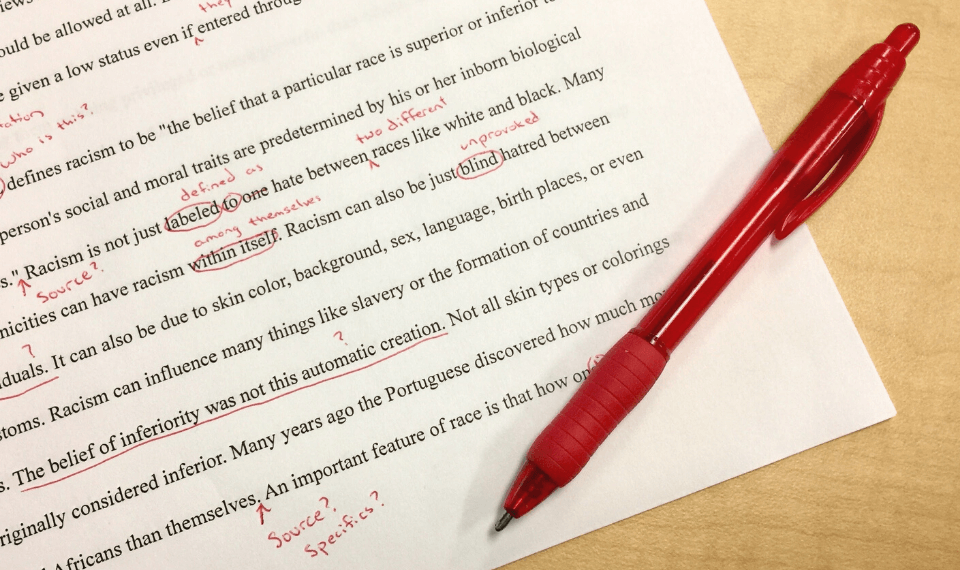 they
ould be allowed at all.
e given a low status even if entered throu
tation
who is this?
defines racism to be "the belief that a particular race is superior or inferior to
person's social and moral traits are predetermined by his or her inborn biological
defined as
two different
s." Racism is not just labeled to one hate between races like white and black. Many
Source?
among themselves
unprovoked
nicities can have racism within itself. Racism can also be just blind hatred between
?
iduals. It can also be due to skin color, background, sex, language, birth places, or even
stoms. Racism can influence many things like slavery or the formation of countries and
?
s. The belief of inferiority was not this automatic creation. Not all skin types or colorings
riginally considered inferior. Many years ago the Portuguese discovered how much mo
d Africans than themselves. An important feature of race is that how on
Source?
Specifics?